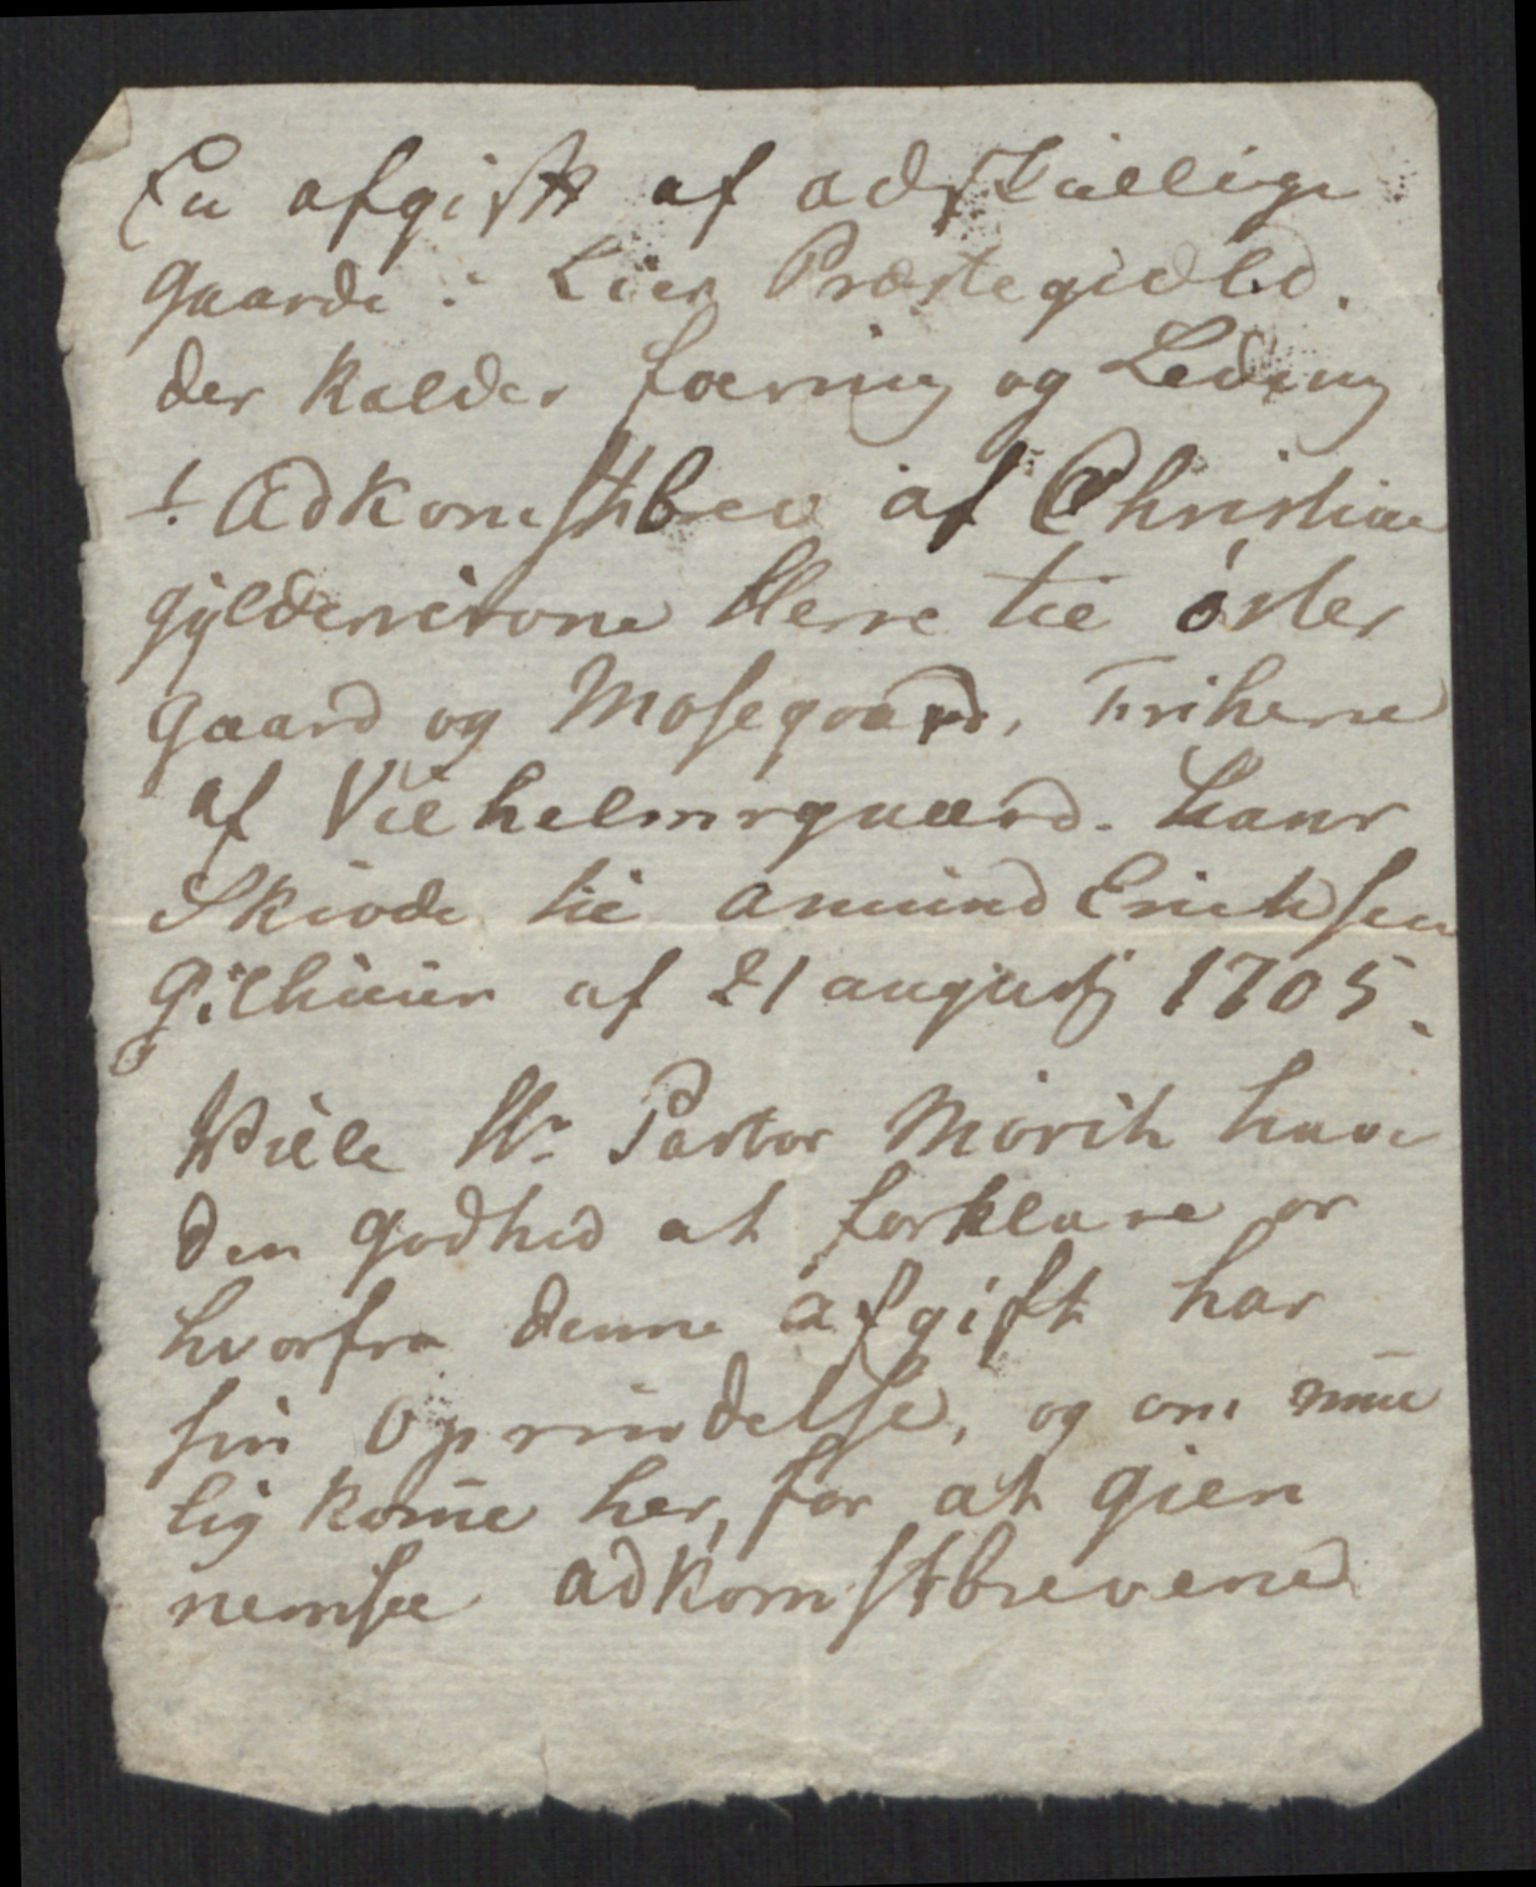 En afgift af adskillige
Gaarde i Lier Præstegield.
der kaldes foering og Leding
1. Adkomstbrev af Christian
gyldenløve Herre til öster
gaard og Mosegaard, Friherre
af Vilhelmsgaard. hans
Skiøde til Amund Erichsen
af 21 augustj 1705.
Wille Hr Pastor Mörch have
den godhed at forklare os
hvorfra denne afgift har
sin Oprindelse, og om mue
lig kom̄e her, for at gien
nemsee adkomstbrevene